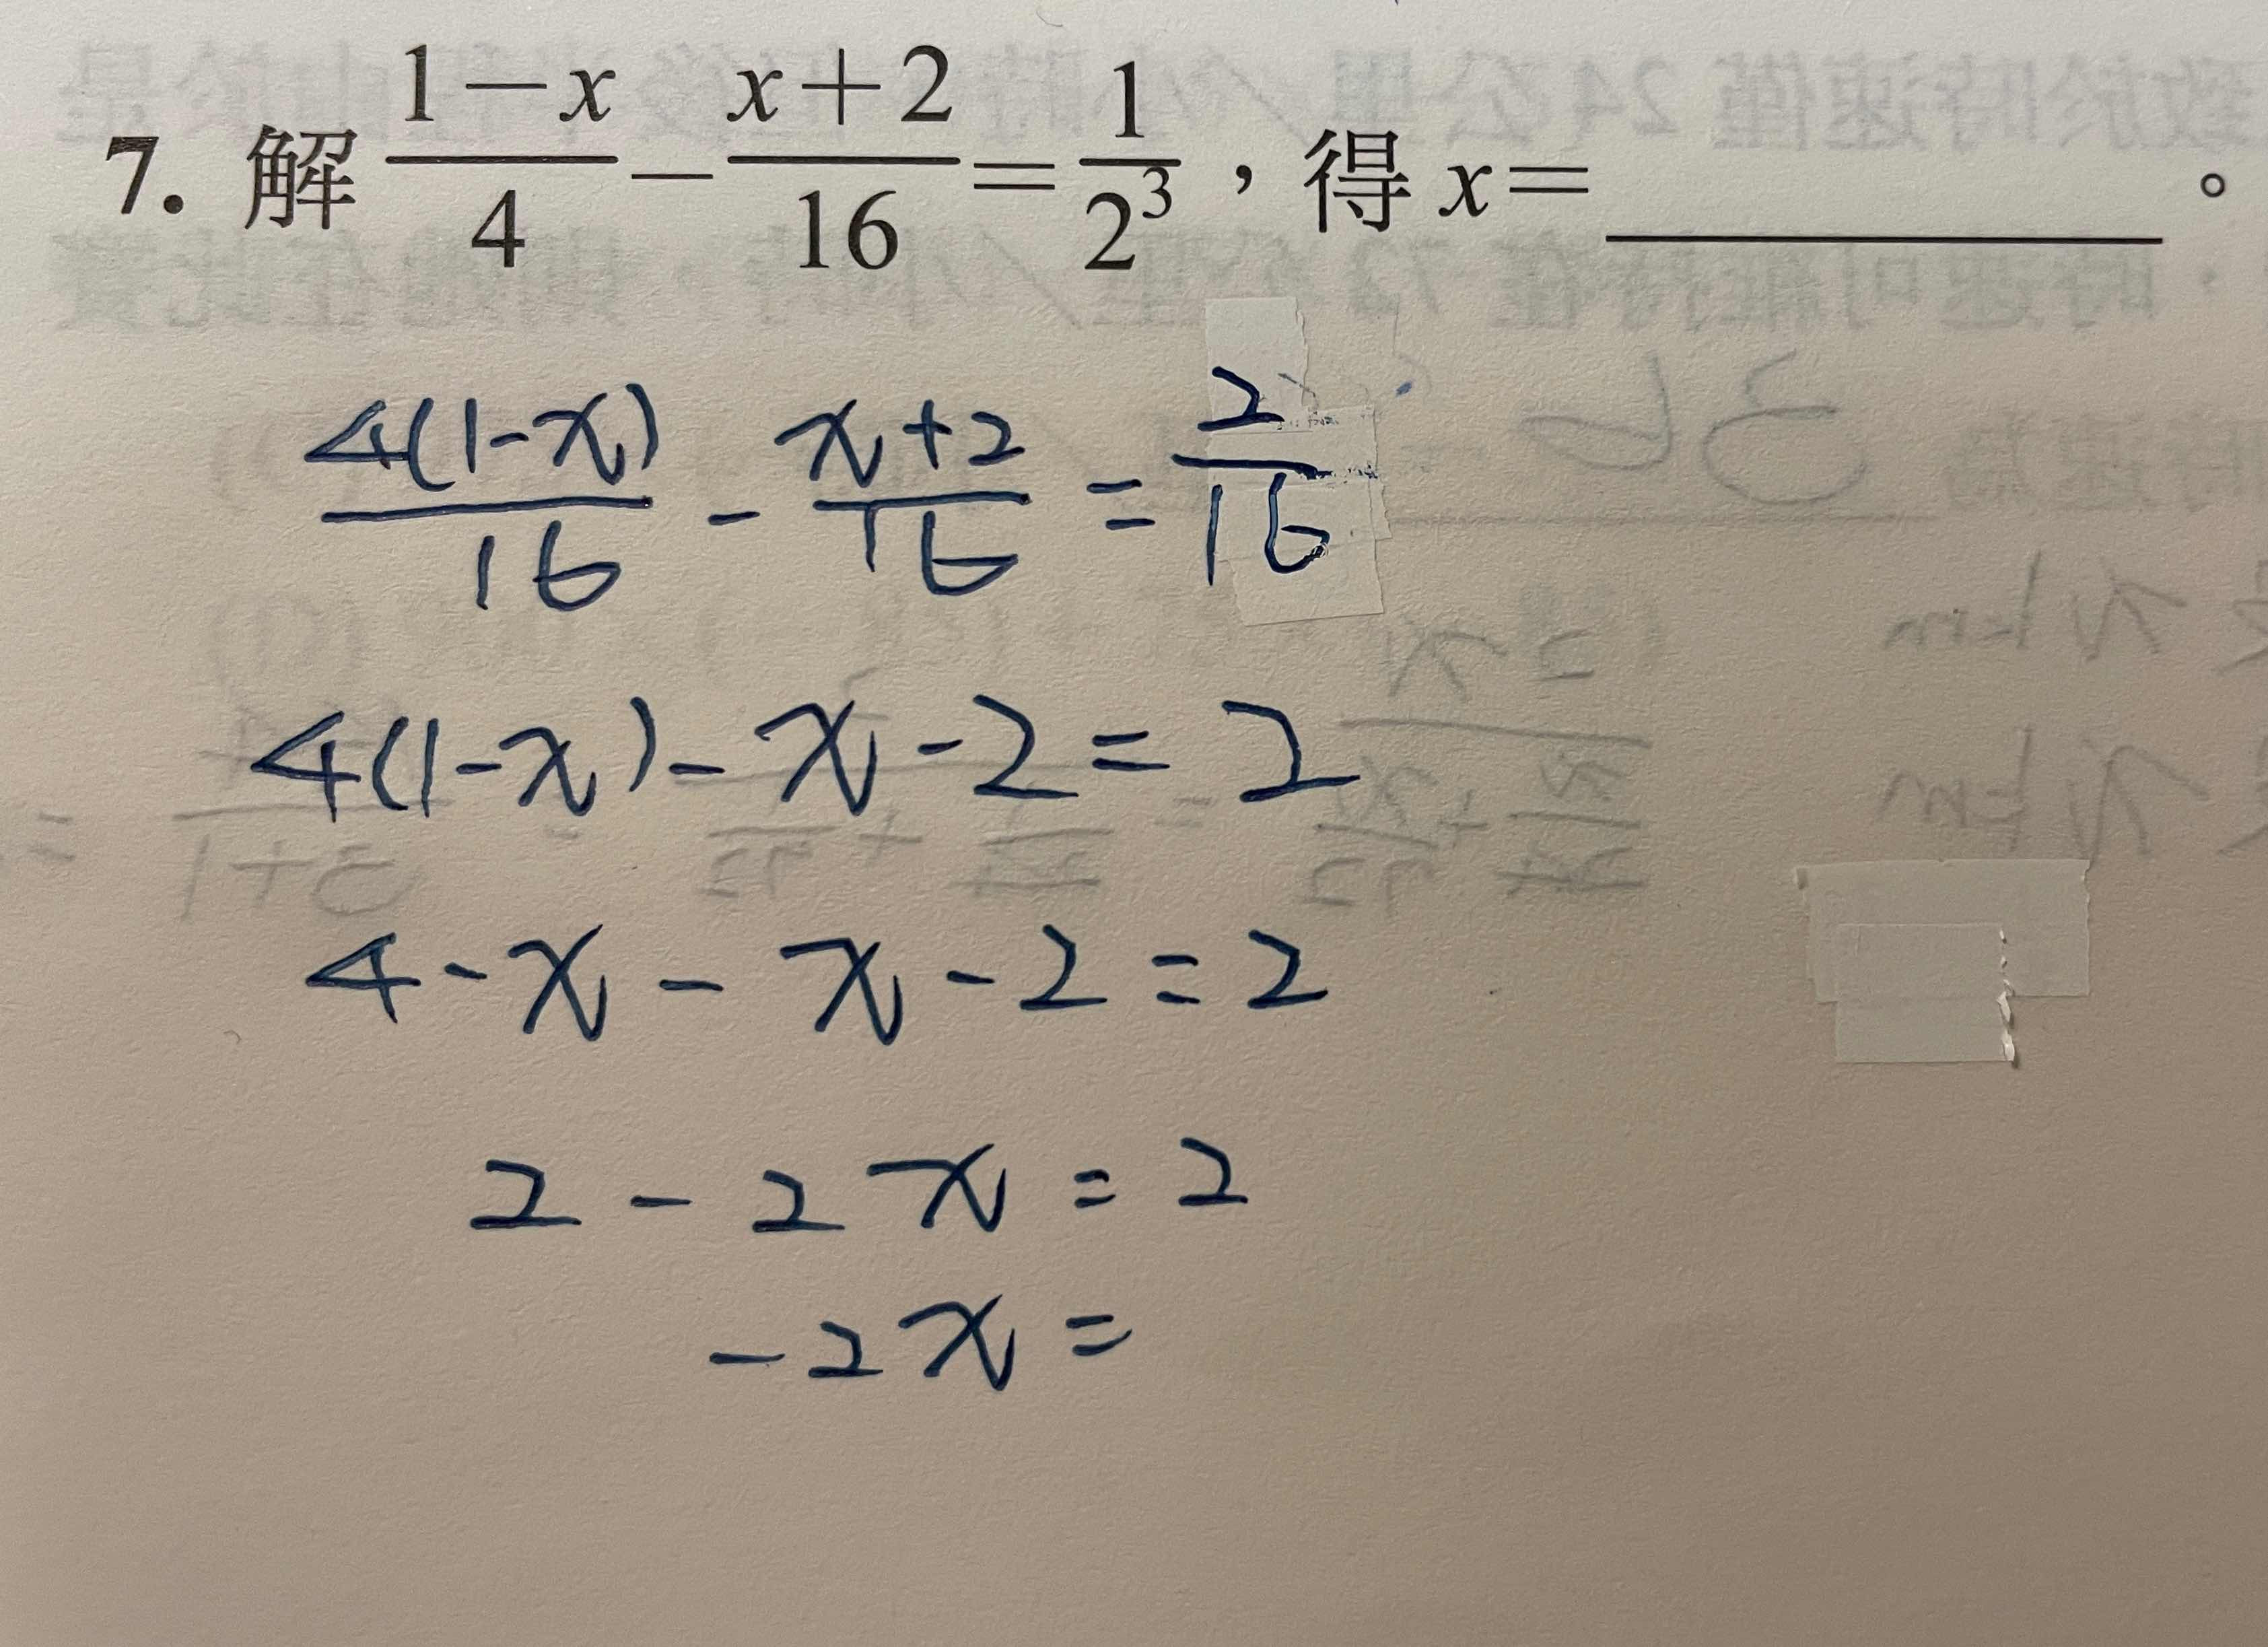 7. 解 \frac{1-x}{4} - \frac{x+2}{16} = \frac{1}{2^3}，得 x=______。
\frac{4(1-x)}{16} - \frac{x+2}{16} = \frac{2}{16}
4(1-x)-x-2=2
4-x-x-2=2
2-2x=2
-2x=